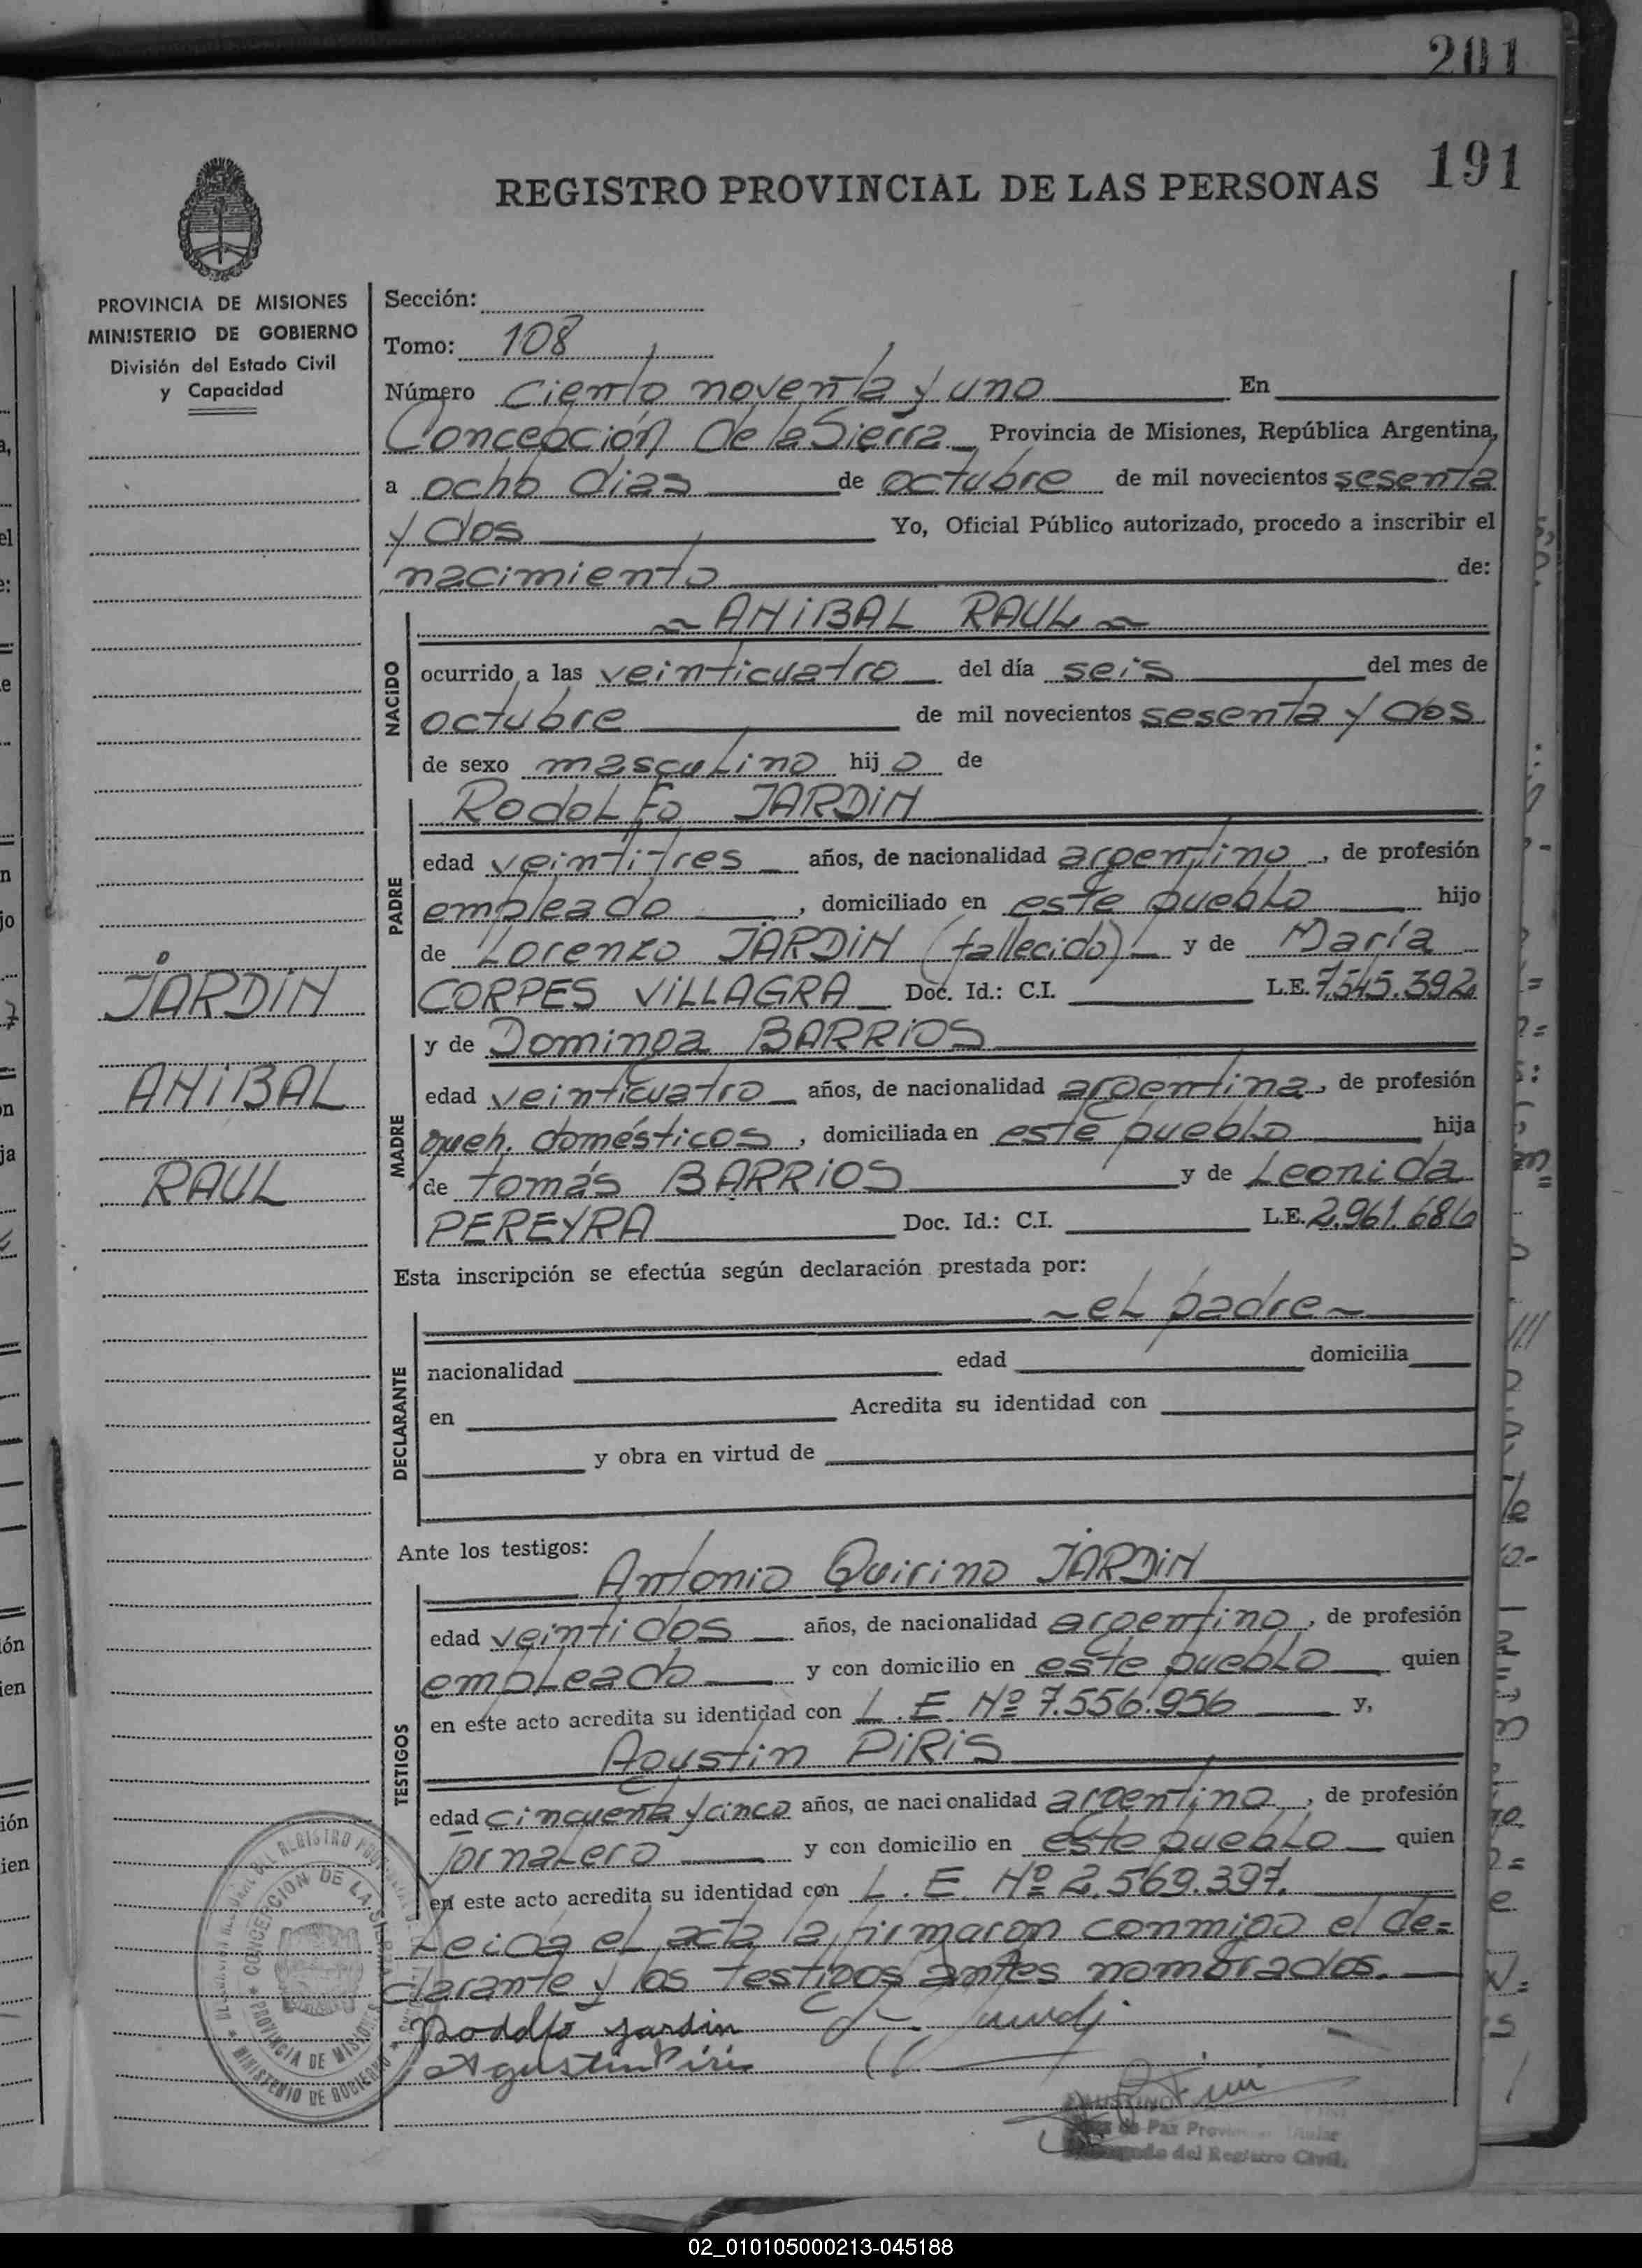 201
191
REGISTRO PROVINCIAL DE LAS PERSONAS
PROVINCIA DE MISIONES
MINISTERIO DE GOBIERNO
División del Estado Civil
y Capacidad
JARDIN
ANIBAL
RAUL
Sección:
Tomo: 108
Número ciento noventa y uno En
Concepción de la Sierra Provincia de Misiones, República Argentina,
a ocho dias de octubre de mil novecientos sesenta
y dos Yo, Oficial Público autorizado, procedo a inscribir el
nacimiento de:
NACIDO
ANIBAL RAUL
ocurrido a las veinticuatro del día seis del mes de
octubre de mil novecientos sesenta y dos
de sexo masculino hijo de
PADRE
Rodolfo JARDIN
edad veintitres años, de nacionalidad argentino, de profesión
empleado, domiciliado en este pueblo hijo
de Lorenzo JARDIN (fallecido) y de María
CORPES VILLAGRA Doc. Id.: C.I. L.E. 7.545.392
MADRE
y de Dominga BARRIOS
edad veinticuatro años, de nacionalidad argentina, de profesión
queh. domésticos, domiciliada en este pueblo hija
de Tomás BARRIOS y de Leonida
PEREYRA Doc. Id.: C.I. L.E. 2.961.686
Esta inscripción se efectúa según declaración prestada por:
el padre
DECLARANTE
nacionalidad edad domicilia
en Acredita su identidad con
y obra en virtud de
Ante los testigos:
TESTIGOS
Antonio Quirino JARDIN
edad veintidos años, de nacionalidad argentino, de profesión
empleado y con domicilio en este pueblo quien
en este acto acredita su identidad con L.E. Nº 7.556.956 y,
Agustin PIRIS
edad cincuenta y cinco años, de nacionalidad argentino, de profesión
jornalero y con domicilio en este pueblo quien
en este acto acredita su identidad con L.E. Nº 2.569.397.
Leida el acta la firmaron conmigo el de=
clarante y los testigos antes nombrados.
Rodolfo Jardin
Agustin Piris
CONCEPCION DE LA SIERRA
PROVINCIA DE MISIONES
MINISTERIO DE GOBIERNO
FAUSTINO
de Paz
del Registro Civil.
02_010105000213-045188